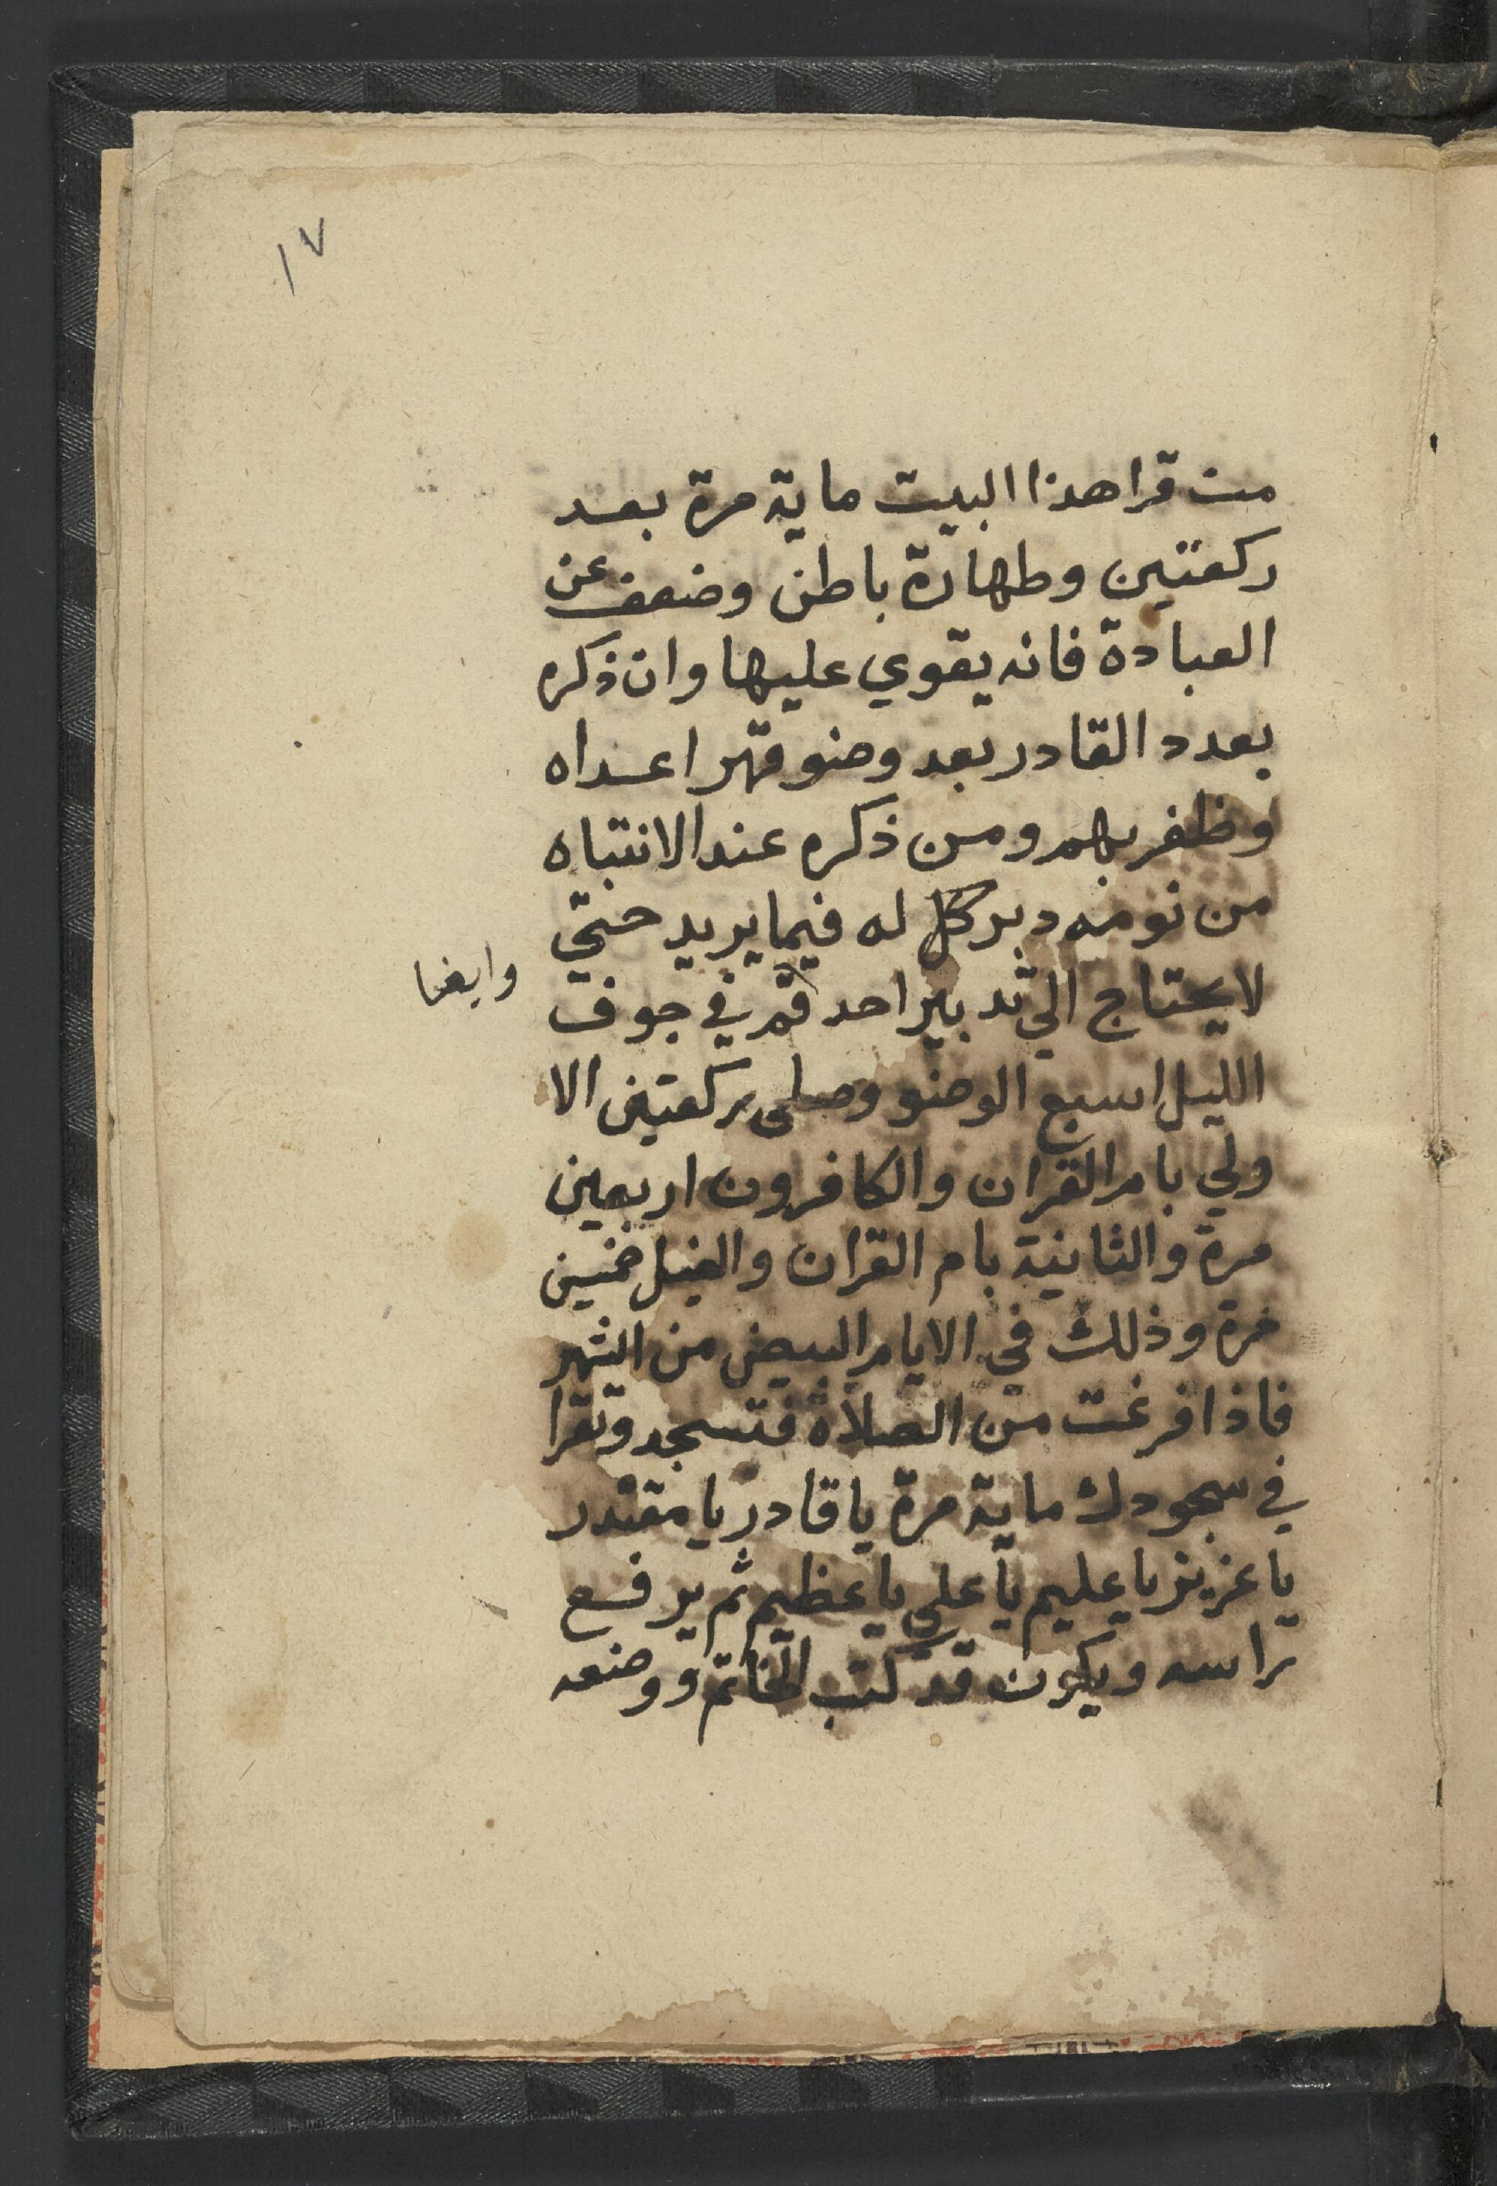 ١٧
من قراهذا البيت ماية مرة بعد
ركعتين وطهارة باطن وضعف عن
العبادة فانه يقوي عليها وان ذكره
بعدد القادر بعد وضو قهر اعداه
وظفر بهم ومن ذكره عند الانتباه
من نومه دبر كل له فيما يريد حتي
لا يحتاج الي تدبير احد قم في جوف
وايضا
الليل اسبع الوضو وصلى ركعتين الا
ولي بام القران والكافرون اربعين
مرة والثانية بام القران والفيل خمسين
مرة وذلك في الايام البيض من الشهر
فاذا فرغت من الصلاة فتسجد وتقرا
في سجودك ماية مرة يا قادر يا مقتدر
يا عزيز يا عليم يا علي يا عظيم ثم يرفع
راسه ويكون قد كتب الخاتم ووضعه